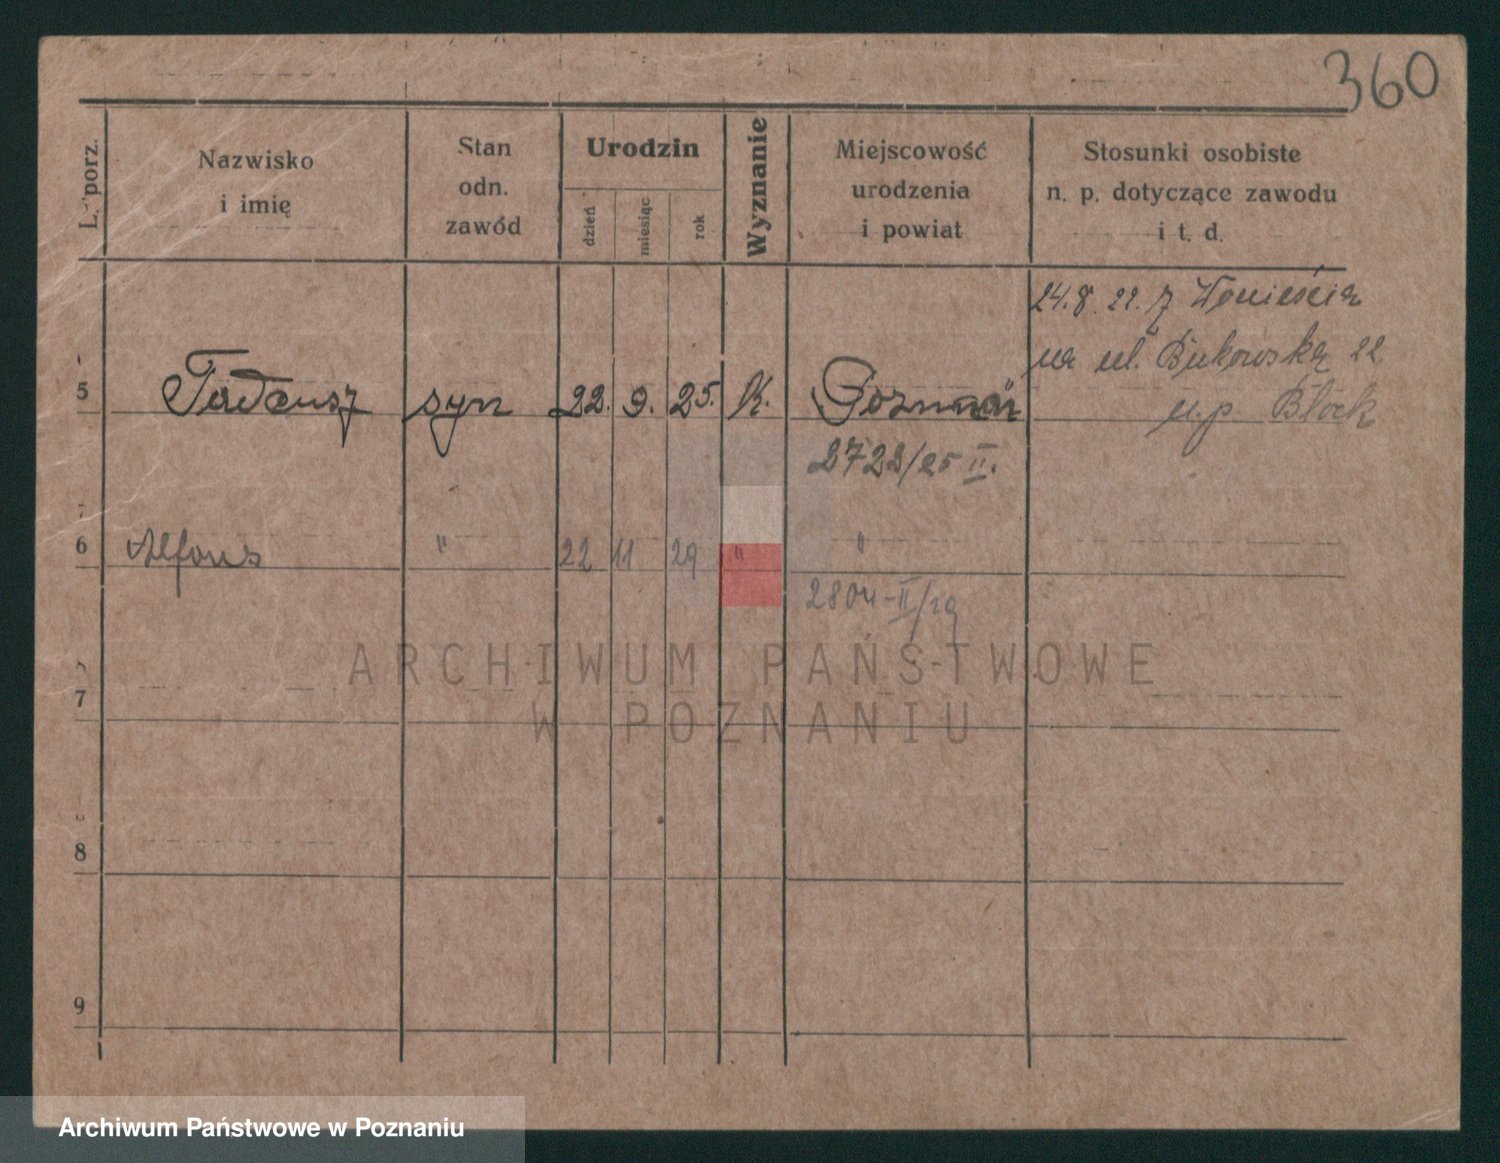 360
L. porz.
Nazwisko
i imię
Stan
odn.
zawód
Urodzin
dzień
miesiąc
rok
Wyznanie
Miejscowość
urodzenia
i powiat
Stosunki osobiste
n. p. dotyczące zawodu
i t. d.
24.8. 22. z
na ul. Bukowska 22
u.p. Block
5 Tadeusz syn 22. 9. 25. K. Poznań
2722/25 II.
6 Alfons " 22 11 29 " "
2804-II/29
7
8
9
ARCHIWUM PAŃSTWOWE
W POZNANIU
Archiwum Państwowe w Poznaniu